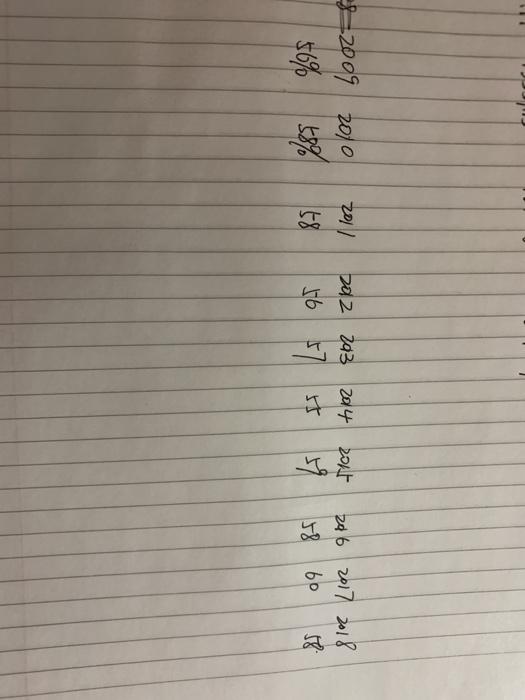 8=2009 2010 2011 2012 2013 2014 2015 2016 2017 2018
56% 58% 58 56 57 55 59 58 60 58